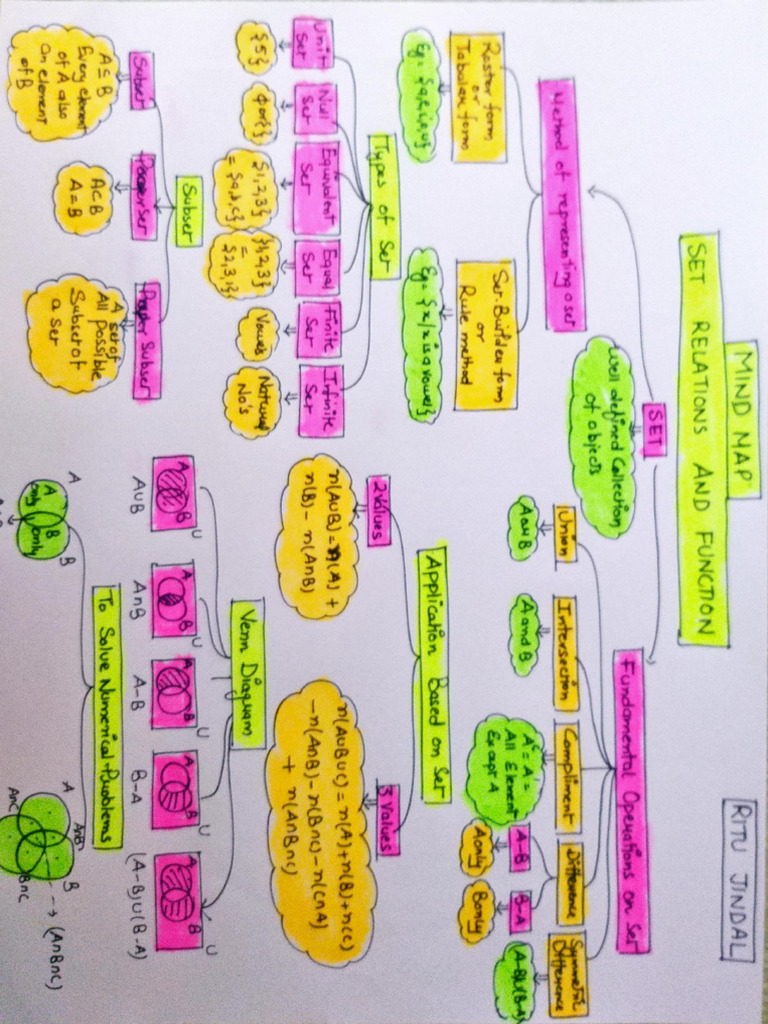 MIND MAP
SET RELATIONS AND FUNCTION
RITU JINDAL
SET
Well defined Collection
of objects
Method of representing a set
Roster form
or
Tabular form
Eg = {a,e,i,o,u}
Set-Builder form
or
Rule method
Eg = {x/x is vowel}
Types of Set
Unit
Set
{5}
Null
Set
ϕ or { }
Equivalent
Set
{1,2,3}
= {a,b,c}
Equal
Set
{1,2,3}
=
{2,3,1}
Finite
Set
Vowels
Infinite
Set
Natural
No's
Subset
Subset
A ⊆ B
Every element
of A also
an element
of B
A⊂B
A=B
Subset
A set of
All possible
Subset of
a set
Fundamental Operations on Set
Union
A or B
Intersection
A and B
Compliment
Aᶜ = A' =
All Element
Except A
Difference
A-B
A only
B-A
B only
Symmetric
Difference
(A-B)∪(B-A)
Application Based on Set
2 Values
n(A∪B) = n(A) +
n(B) - n(A∩B)
3 Values
n(A∪B∪C) = n(A)+n(B)+n(C)
-n(A∩B)-n(B∩C)-n(C∩A)
+ n(A∩B∩C)
Venn Diagram
A B U
A∪B
A B U
A∩B
A B U
A-B
A B U
B-A
A B U
(A-B)∪(B-A)
To Solve Numerical Problems
A B
A only
B only
A B
A∩B
A∩C
B∩C
(A∩B∩C)